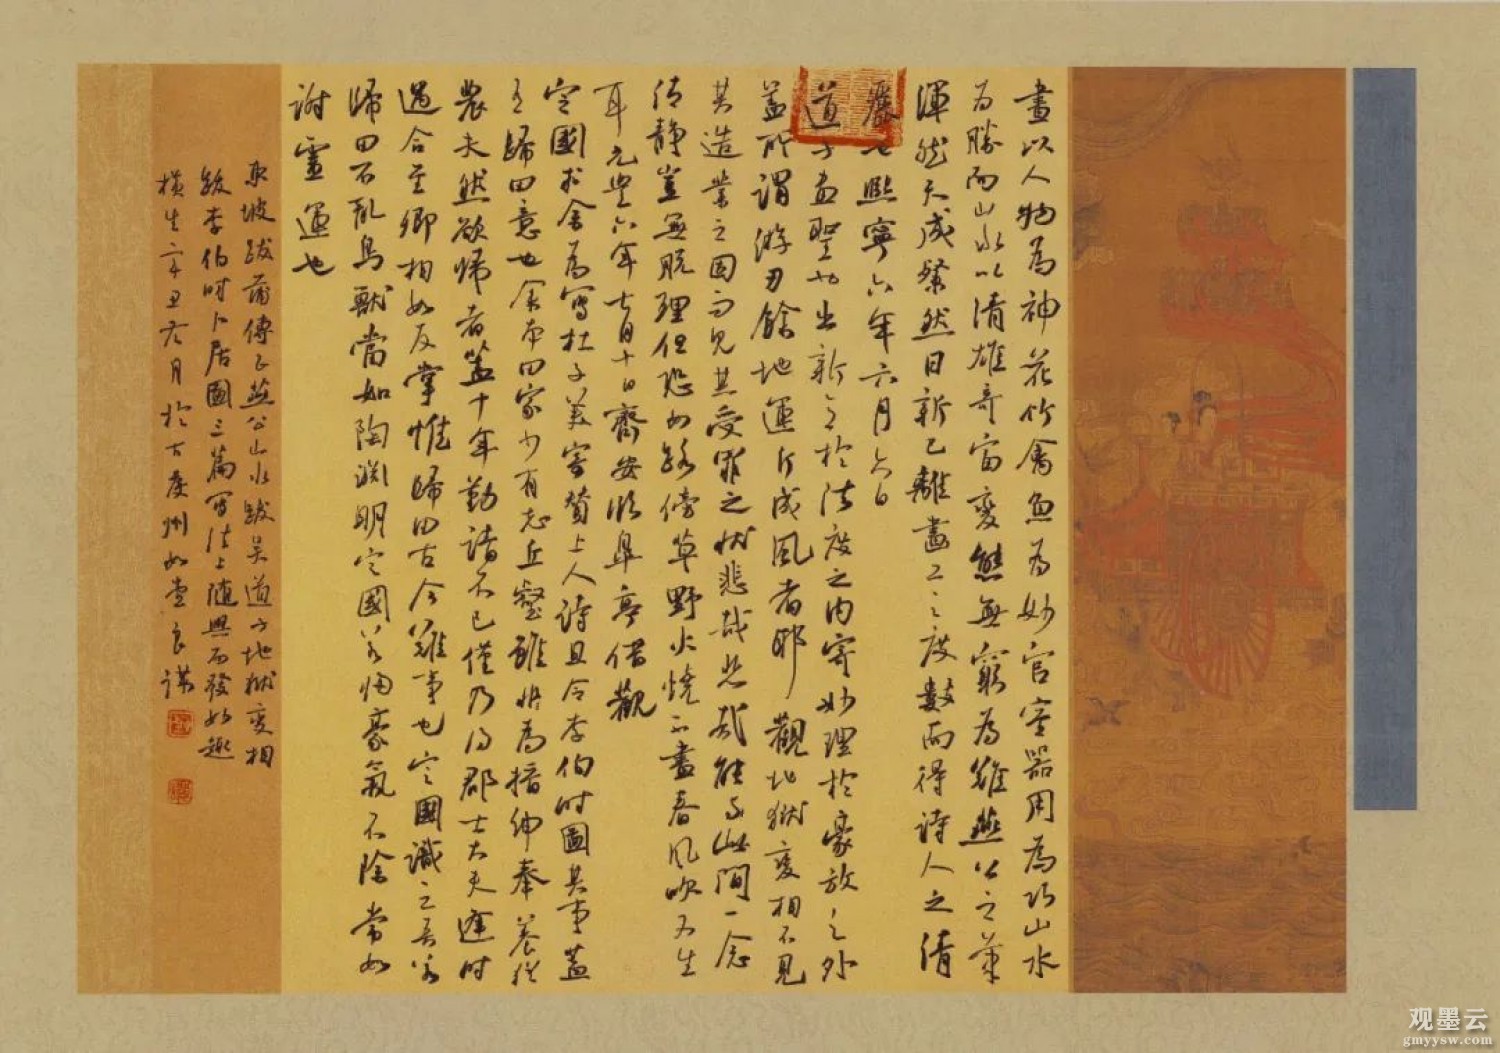 畫以人物為神花竹禽魚為妙宮室器用為巧山水
為勝而山水以清雄奇富變態無窮為難燕公之筆
渾然天成粲然日新已離畫工之度數而得詩人之清
麗也熙寧六年六月六日
道子畫聖也出新意於法度之內寄妙理於豪放之外
蓋所謂游刃餘地運斤成風者耶觀地獄變相不見
其造業之因而見其受罪之狀悲哉悲哉能于此間一念
清靜豈無脫理但恐如路傍草野火燒不盡春風吹又生
耳元豐六年七月十日齊安臨皋亭借觀
定國求余為寫杜子美寄贊上人詩且令李伯時圖其事蓋
有歸田意也余本田家少有志丘壑雖為搢紳奉養猶
農夫然欲歸者蓋十年勤請不已僅乃得郡士大夫逢時
遇合至卿相如反掌惟歸田古今難事也定國識之吾若
歸田不亂鳥獸當如陶淵明定國若歸豪氣不除當如
謝靈運也
東坡跋蒲傳正燕公山水跋吳道子地獄變相
跋李伯時卜居圖三篇寫法上隨興而發
橫生辛丑冬月於古虔州如堂良謀
观墨云
gmyysw.com